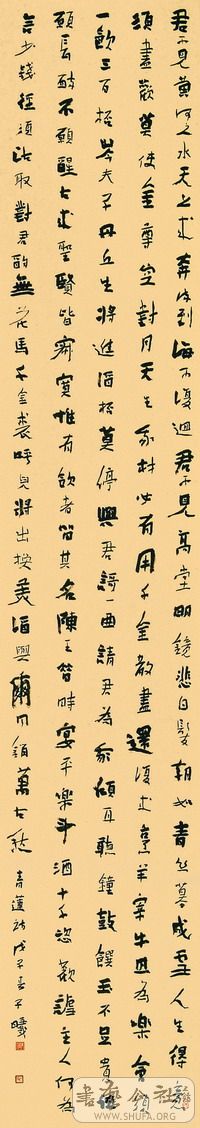 君不見黃河之水天上來奔流到海不復迴君不見高堂明鏡悲白髮朝如青絲暮成雪人生得意
須盡歡莫使金尊空對月天生我材必有用千金散盡還復來烹羊宰牛且為樂會須
一飲三百杯岑夫子丹丘生將進酒杯莫停與君謌一曲請君為我傾耳聽鐘鼓饌玉不足貴但
願長醉不願醒古來聖賢皆寂寞惟有飲者留其名陳王昔時宴平樂斗酒十千恣歡謔主人何為
言少錢徑須沽取對君酌無花馬千金裘呼兒將出換美酒與爾同銷萬古愁
青蓮詩戊子春于曦
書藝公社
WWW.SHUFA.ORG